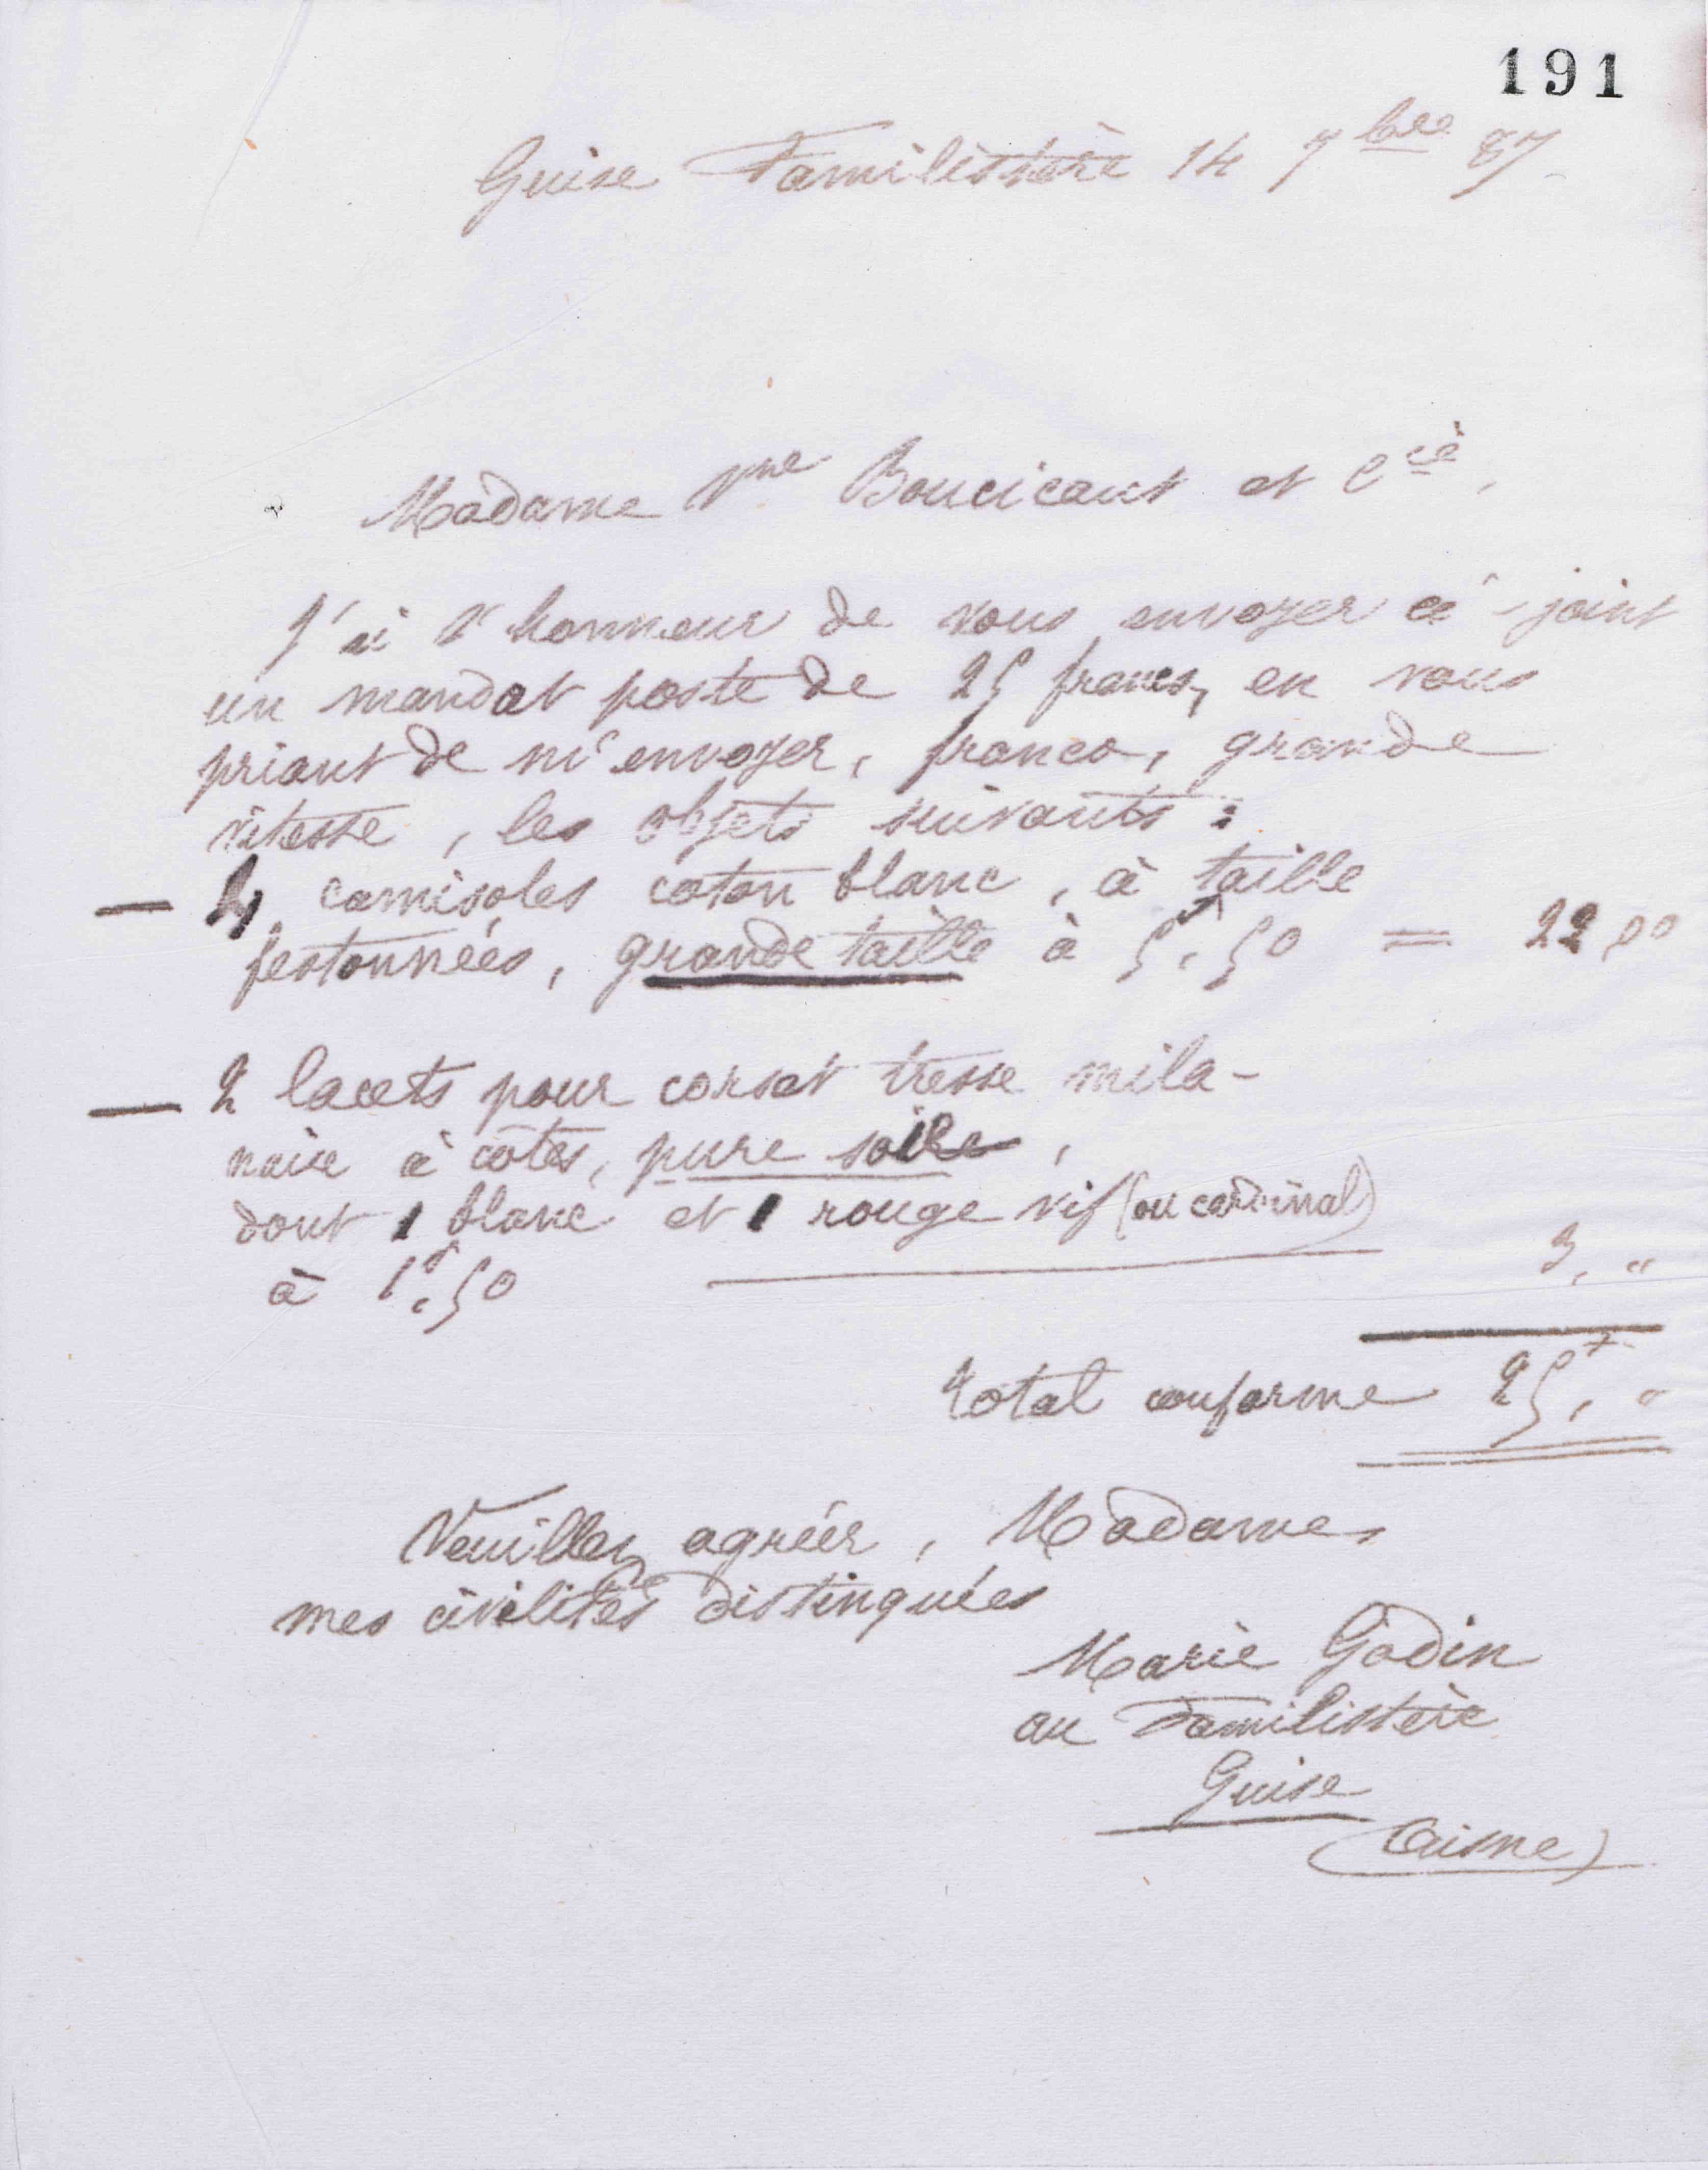 191
Guise Familistère 14 7bre 87
Madame Vve Boucicaut et Cie,
J'ai l'honneur de vous envoyer ci-joint
un mandat poste de 25 francs, en vous
priant de m'envoyer, franco, grande
vitesse, les objets suivants :
— 4 camisoles coton blanc, à taille
festonnées, grande taille à 5f,50 = 22,00
— 2 lacets pour corset tresse mila-
naise à côtes, pure soie,
dont 1 blanc et 1 rouge vif (ou cardinal)
à 1f,50 3, "
total conforme 25f, "
Veuillez agréer, Madame,
mes civilités distinguées
Marie Godin
au Familistère
Guise
(Aisne)